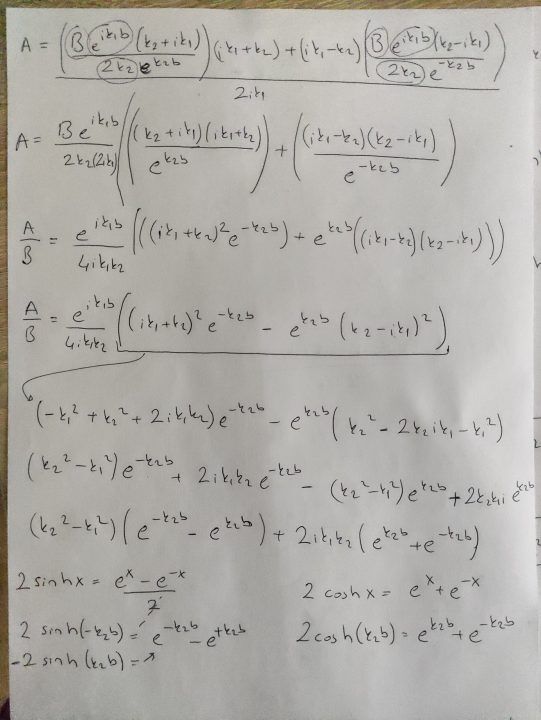 A = ((B e^{ik₁b} (k₂+ik₁))/(2k₂ e^{k₂b})) (ik₁+k₂) + (ik₁-k₂) ((B e^{ik₁b} (k₂-ik₁))/(2k₂ e^{-k₂b})) / 2ik₁
A = (B e^{ik₁b})/(2k₂(2ik₁)) (((k₂+ik₁)(ik₁+k₂))/(e^{k₂b})) + (((ik₁-k₂)(k₂-ik₁))/(e^{-k₂b}))
A/B = (e^{ik₁b})/(4ik₁k₂) (((ik₁+k₂)² e^{-k₂b}) + e^{k₂b} ((ik₁-k₂)(k₂-ik₁)))
A/B = (e^{ik₁b})/(4ik₁k₂) ((ik₁+k₂)² e^{-k₂b} - e^{k₂b} (k₂-ik₁)²)
(-k₁² + k₂² + 2ik₁k₂) e^{-k₂b} - e^{k₂b} (k₂² - 2k₂ik₁ - k₁²)
(k₂² - k₁²) e^{-k₂b} + 2ik₁k₂ e^{-k₂b} - (k₂² - k₁²) e^{k₂b} + 2k₂k₁i e^{k₂b}
(k₂² - k₁²) (e^{-k₂b} - e^{k₂b}) + 2ik₁k₂ (e^{k₂b} + e^{-k₂b})
2 sinh x = (e^x - e^{-x})/2 2 cosh x = e^x + e^{-x}
2 sinh(-k₂b) = e^{-k₂b} - e^{+k₂b} 2 cosh(k₂b) = e^{k₂b} + e^{-k₂b}
-2 sinh(k₂b) = ↗